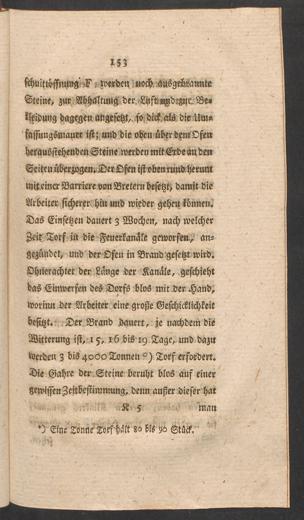 153
schuttöffnung F, werden noch ausgebrannte
Steine, zur Abhaltung der Luft und zur Be-
kleidung dagegen angesetzt, so dick als die Um-
fassungsmauer ist; und die oben über dem Ofen
herausstehenden Steine werden mit Erde an den
Seiten überzogen. Der Ofen ist oben rund herum
mit einer Barriere von Bretern besetzt, damit die
Arbeiter sicherer hin und wieder gehen können.
Das Einsetzen dauert 3 Wochen, nach welcher
Zeit Torf in die Feuerkanäle geworfen, an-
gezündet, und der Ofen in Brand gesetzt wird.
Ohnerachtet der Länge der Kanäle, geschieht
das Einwerfen des Dorfs blos mit der Hand,
worinn der Arbeiter eine große Geschicklichkeit
besitzt. Der Brand dauert, je nachdem die
Witterung ist, 15, 16 bis 19 Tage, und dazu
werden 3 bis 4000 Tonnen *) Torf erfordert.
Die Gahre der Steine beruht blos auf einer
gewissen Zeitbestimmung, denn ausser dieser hat
K 5 man
*) Eine Tonne Torf hält 80 bis 90 Stück.